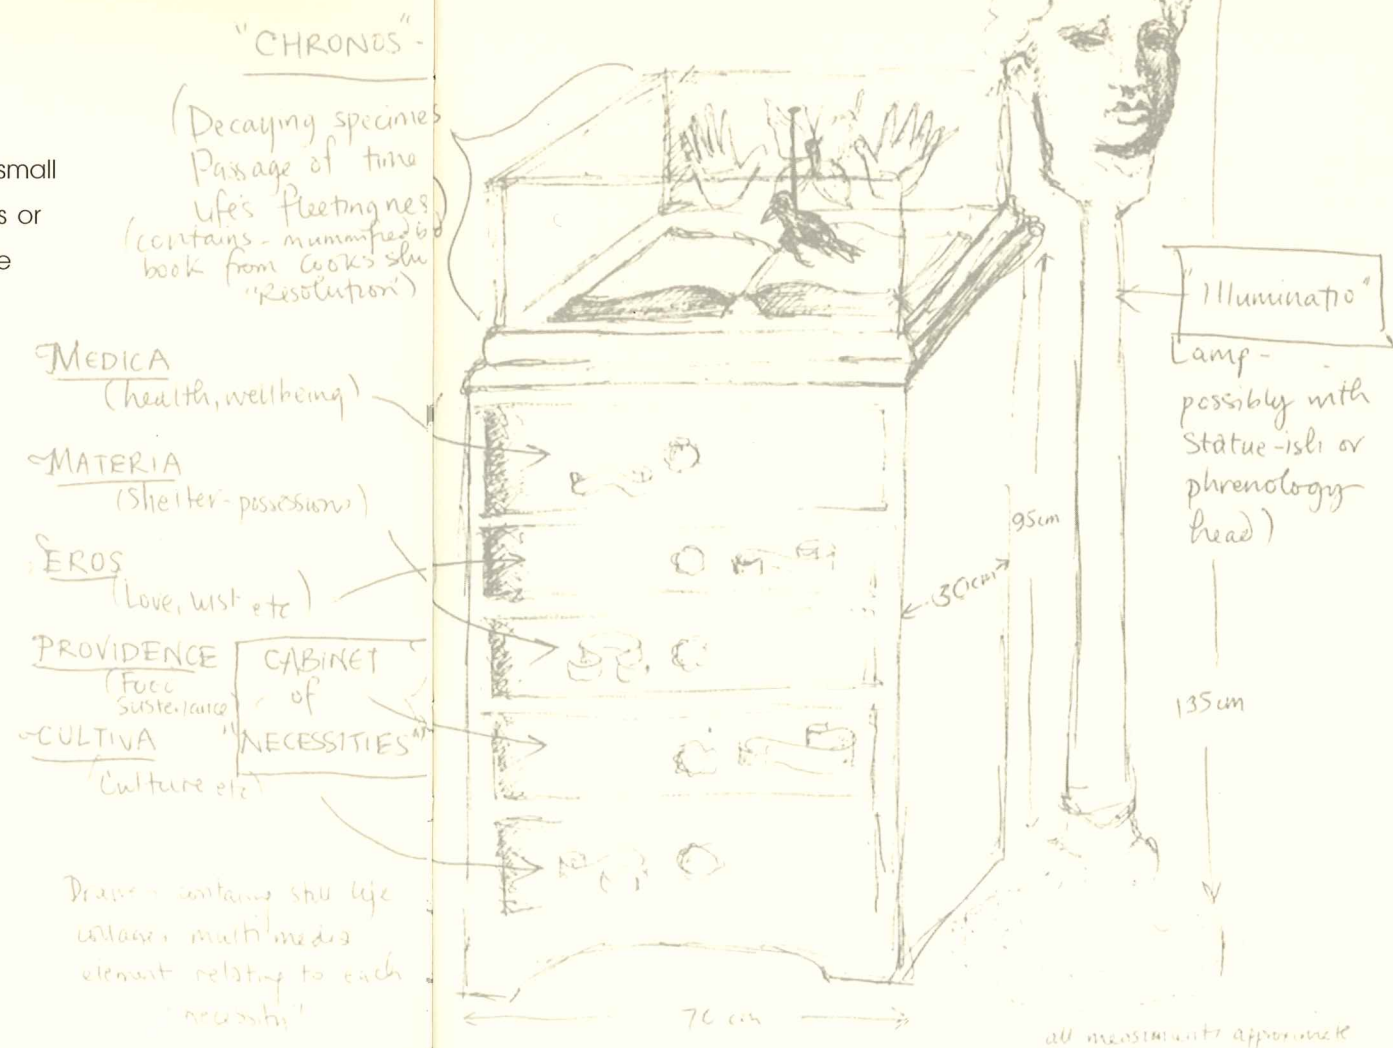 small
s or
e
"CHRONOS" -
(Decaying specimes
Passage of time
Life's fleetingnes
(contains - mummified
book from Cook's
"Resolution")
MEDICA
(health, wellbeing)
MATERIA
(Shelter - possessions)
EROS
(Love, lust etc)
PROVIDENCE
CABINET
of
"NECESSITIES"
CULTIVA
(Culture etc)
contains still life
multi media
element relating to each
"Illuminatio"
Lamp -
possibly with
Statue-ish or
phrenology
head)
95cm
30cm
135cm
70 cm
all measurments approximate